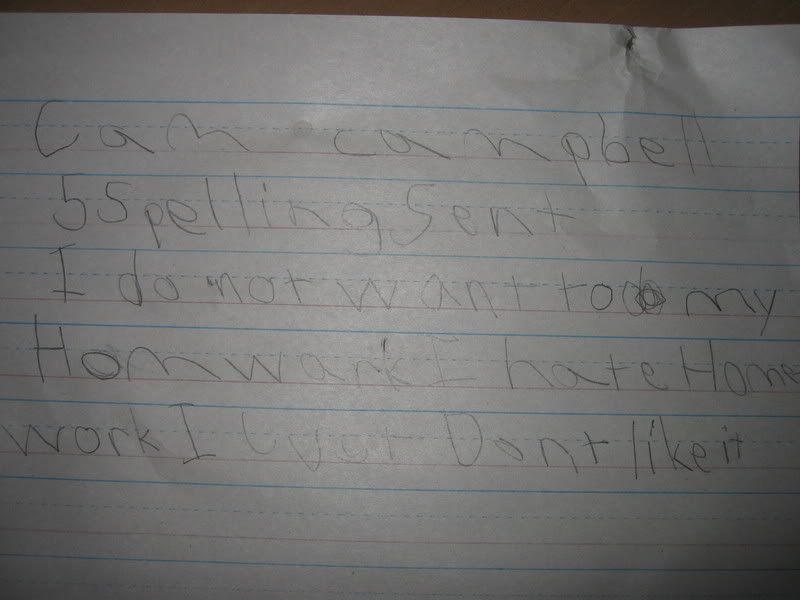 Cam campbell
5 Spelling Sent
I do not want to do my
Homwark I hate Home
work I Dont like it